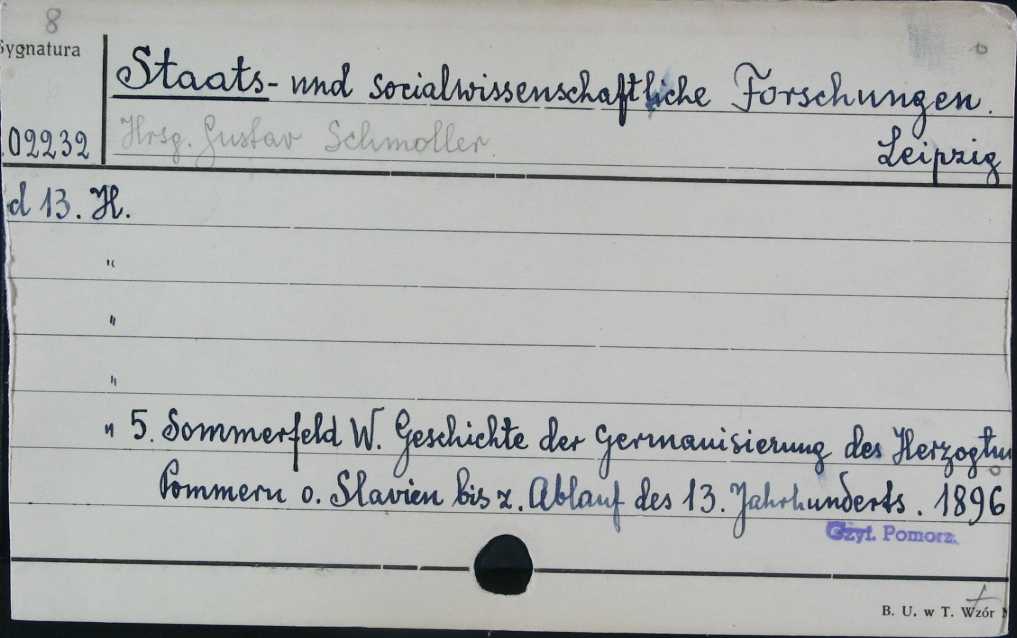 8
Sygnatura
Staats- und socialwissenschaftliche Forschungen.
02232 Hrsg. Gustav Schmoller. Leipzig
d 13. H.
"
"
"
" 5. Sommerfeld W. Geschichte der Germanisierung des Herzogtu
Pommern o. Slavien bis z. Ablauf des 13. Jahrhunderts. 1896
Czyt. Pomorz.
B. U. w T. Wzór